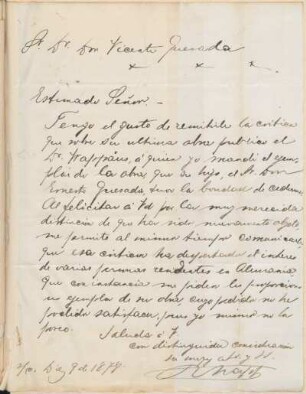 Sr. Dr. Don Vicente Quesada
Estimado Señor.-
Tengo el gusto de remitirle la critica
que sobre su ultima obra publica el
Dr. Wappäus, á quien yo mandé el ejem-
plar de la obra que su hijo, el Sr. Don
Ernesto Quesada tuvo la bondad de cederme.
Al felicitar á Vd por las muy merecida
distincion de que ha sido nuevamente objeto
me permito al mismo tiempo comunicarle
que esa critica ha despertado el interes
de varias personas residentes en Alemania
que con instancia me piden les proporcione
un ejemplar de su obra cuyo pedido no he
podido satisfacer, pues yo mismo no la
poseo.
Saluda á V.
con distinguida consideracion
su muy atto y S.
S/c. 9 de 1879